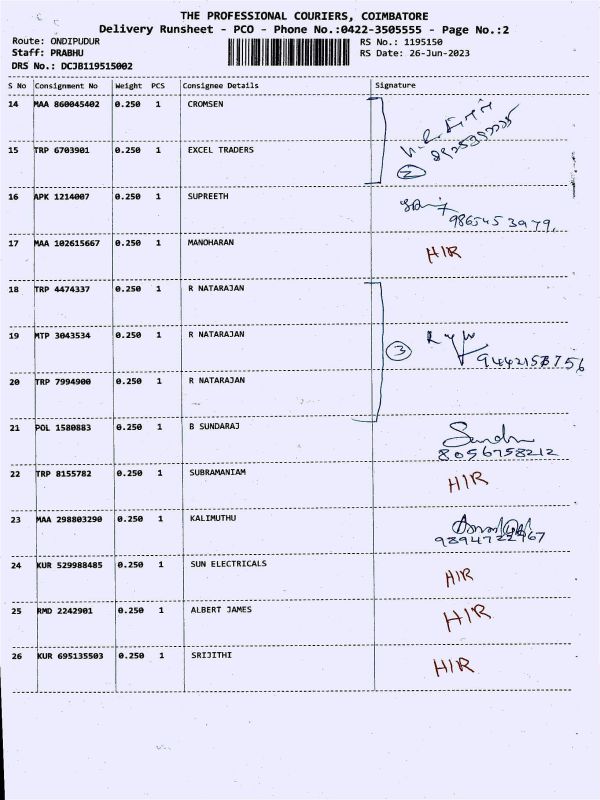 THE PROFESSIONAL COURIERS, COIMBATORE
Delivery Runsheet - PCO - Phone No.:0422-3505555 - Page No.:2
Route: ONDIPUDUR RS No.: 1195150
Staff: PRABHU RS Date: 26-Jun-2023
DRS No.: DCJB119515002
S No Consignment No Weight PCS Consignee Details Signature
14 MAA 860045402 0.250 1 CROMSEN
15 TRP 6703901 0.250 1 EXCEL TRADERS
2
16 APK 1214007 0.250 1 SUPREETH
9865453979.
17 MAA 102615667 0.250 1 MANOHARAN HIR
18 TRP 4474337 0.250 1 R NATARAJAN
19 MTP 3043534 0.250 1 R NATARAJAN
3
20 TRP 7994900 0.250 1 R NATARAJAN
21 POL 1580883 0.250 1 B SUNDARAJ
8056758212
22 TRP 8155782 0.250 1 SUBRAMANIAM HIR
23 MAA 298803290 0.250 1 KALIMUTHU
24 KUR 529988485 0.250 1 SUN ELECTRICALS HIR
25 RMD 2242901 0.250 1 ALBERT JAMES HIR
26 KUR 695135503 0.250 1 SRIJITHI HIR